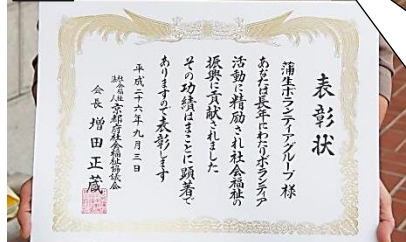 表彰状
蒲生ボランティアグループ 様
あなたは長年にわたりボランティア
活動に精励され社会福祉の
振興に貢献されました
その功績はまことに顕著で
ありますので表彰します
平成二十六年九月三日
社会福祉法人 京都府社会福祉協議会
会長 増田正蔵